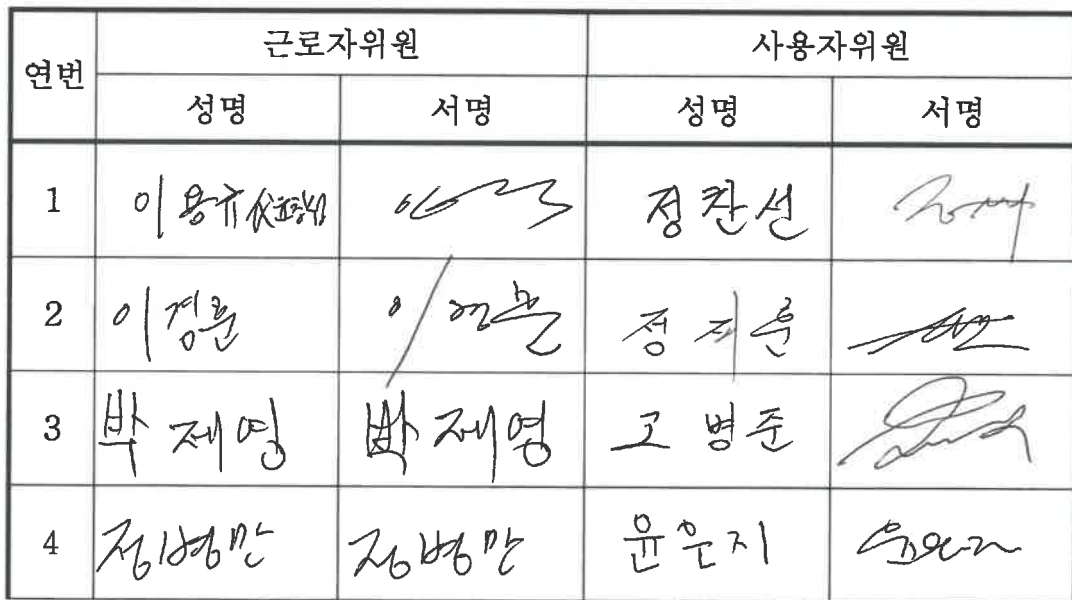 연번 근로자위원 사용자위원
성명 서명 성명 서명
1 이용규 정찬선
2 이경훈 정지훈
3 박제영 박제영 고병준
4 정병만 정병만 윤은지